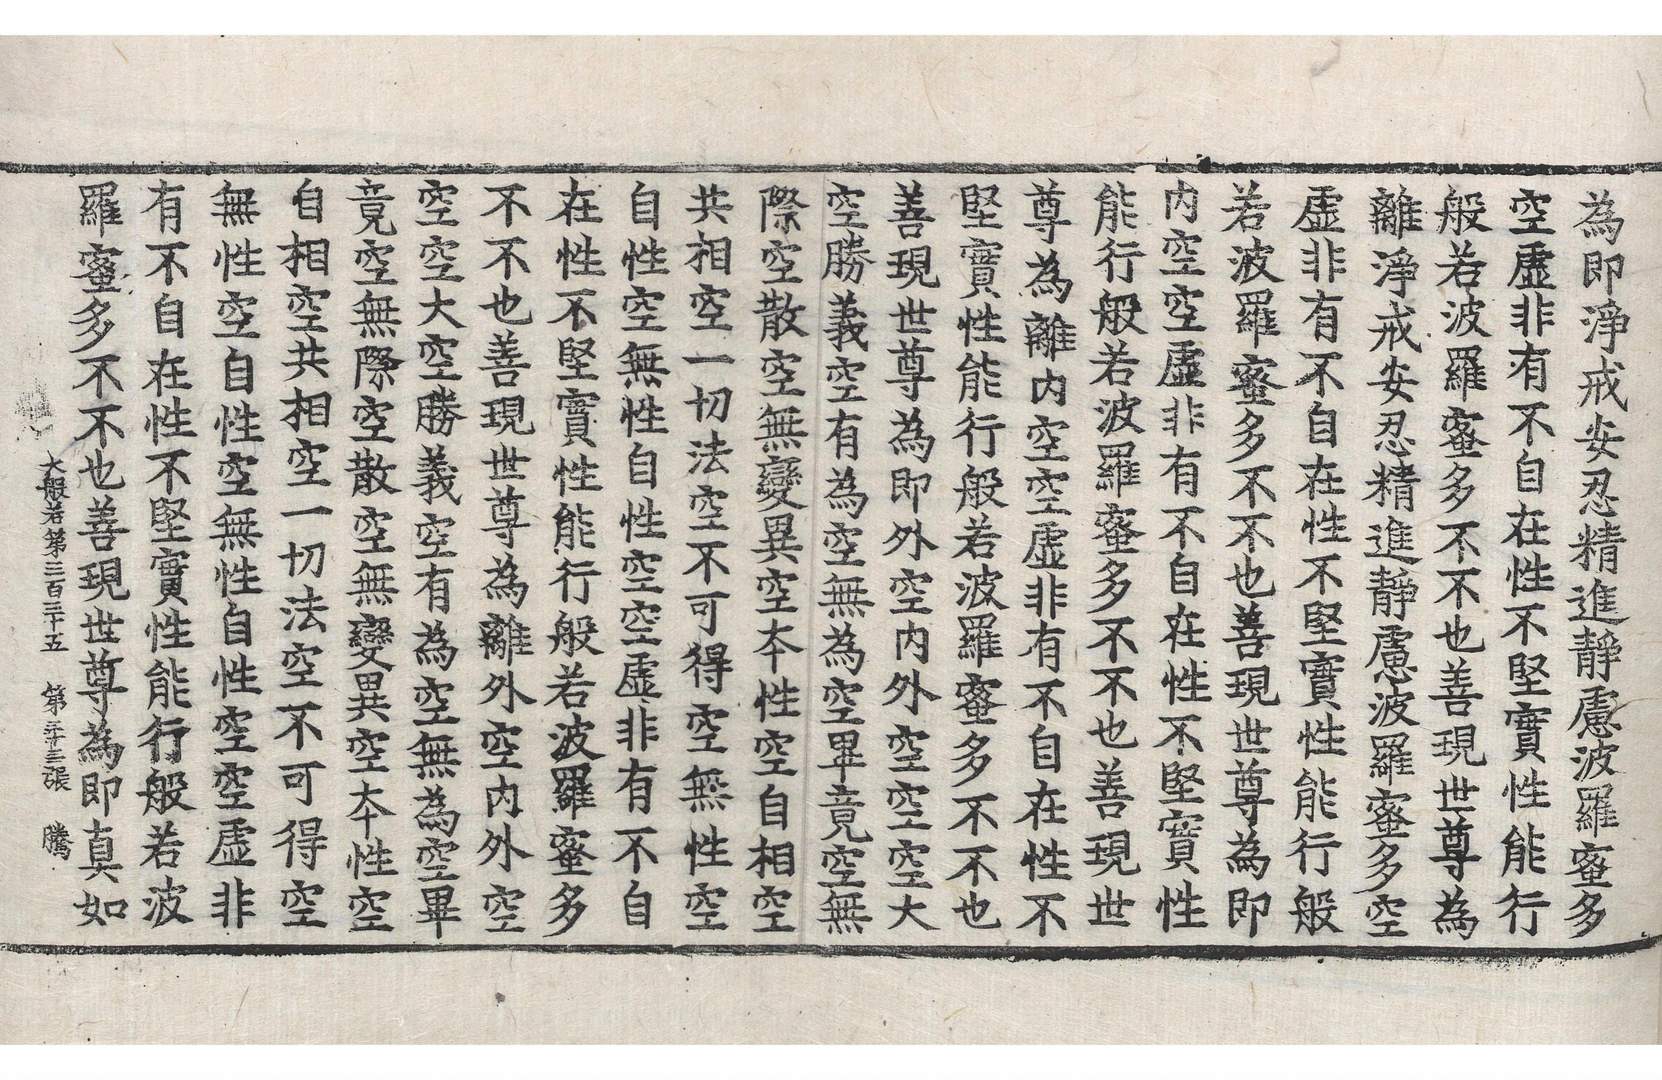 為即淨戒安忍精進靜慮波羅蜜多
空虛非有不自在性不堅實性能行
般若波羅蜜多不不也善現世尊為
離淨戒安忍精進靜慮波羅蜜多空
虛非有不自在性不堅實性能行般
若波羅蜜多不不也善現世尊為即
內空空虛非有不自在性不堅實性
能行般若波羅蜜多不不也善現世
尊為離內空空虛非有不自在性不
堅實性能行般若波羅蜜多不不也
善現世尊為即外空內外空空空大
空勝義空有為空無為空畢竟空無
際空散空無變異空本性空自相空
共相空一切法空不可得空無性空
自性空無性自性空空虛非有不自
在性不堅實性能行般若波羅蜜多
不不也善現世尊為離外空內外空
空空大空勝義空有為空無為空畢
竟空無際空散空無變異空本性空
自相空共相空一切法空不可得空
無性空自性空無性自性空空虛非
有不自在性不堅實性能行般若波
羅蜜多不不也善現世尊為即真如
大般若第三百三十五 第二十三張 騰